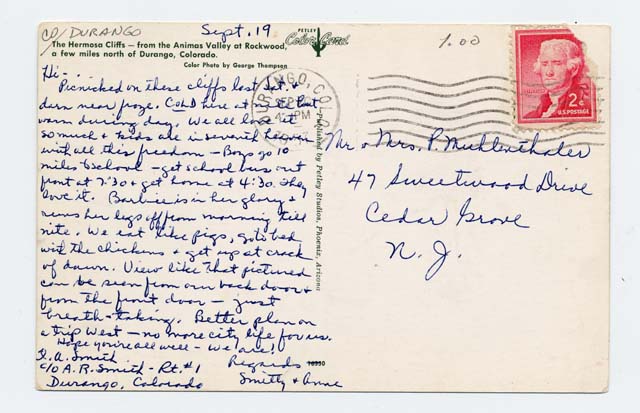 CO/DURANGO
Sept. 19
1.00
The Hermosa Cliffs — from the Animas Valley at Rockwood,
a few miles north of Durango, Colorado.
Color Photo by George Thompson
PETLEY
Color Card
DURANGO, CO
SEP
PM
2¢
U.S. POSTAGE
Hi -
Picnicked on these cliffs last Sat. &
darn near froze. Cold here at nite but
warm during day. We all love it
so much & kids are in seventh heaven
with all this freedom — Boys go 10
miles to school — get school bus out
front at 7:30 & get home at 4:30. They
love it. Barbie is in her glory &
runs her legs off from morning till
nite. We eat like pigs, go to bed
with the chickens & get up at crack
of dawn. View like that pictured
can be seen from our back door &
from the front door — just
breath-taking. Better plan on
a trip West — no more city life for us.
Hope you're all well — we are!
Regards
Smitty & Anne
A. Smith
c/o A.R. Smith - Rt. #1
Durango, Colorado
Published by Petley Studios, Phoenix, Arizona
Mr & Mrs. P. Muhlenthaler
47 Sweetwood Drive
Cedar Grove
N. J.